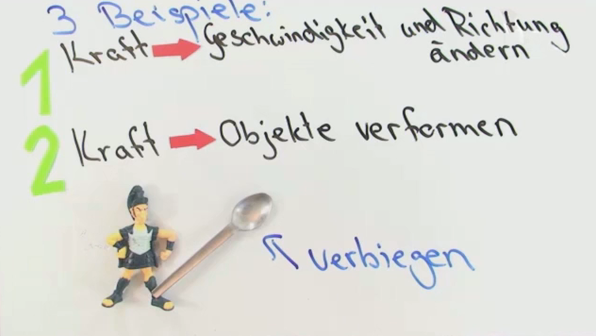 3 Beispiele:
1 Kraft → Geschwindigkeit und Richtung
ändern
2 Kraft → Objekte verformen
verbiegen